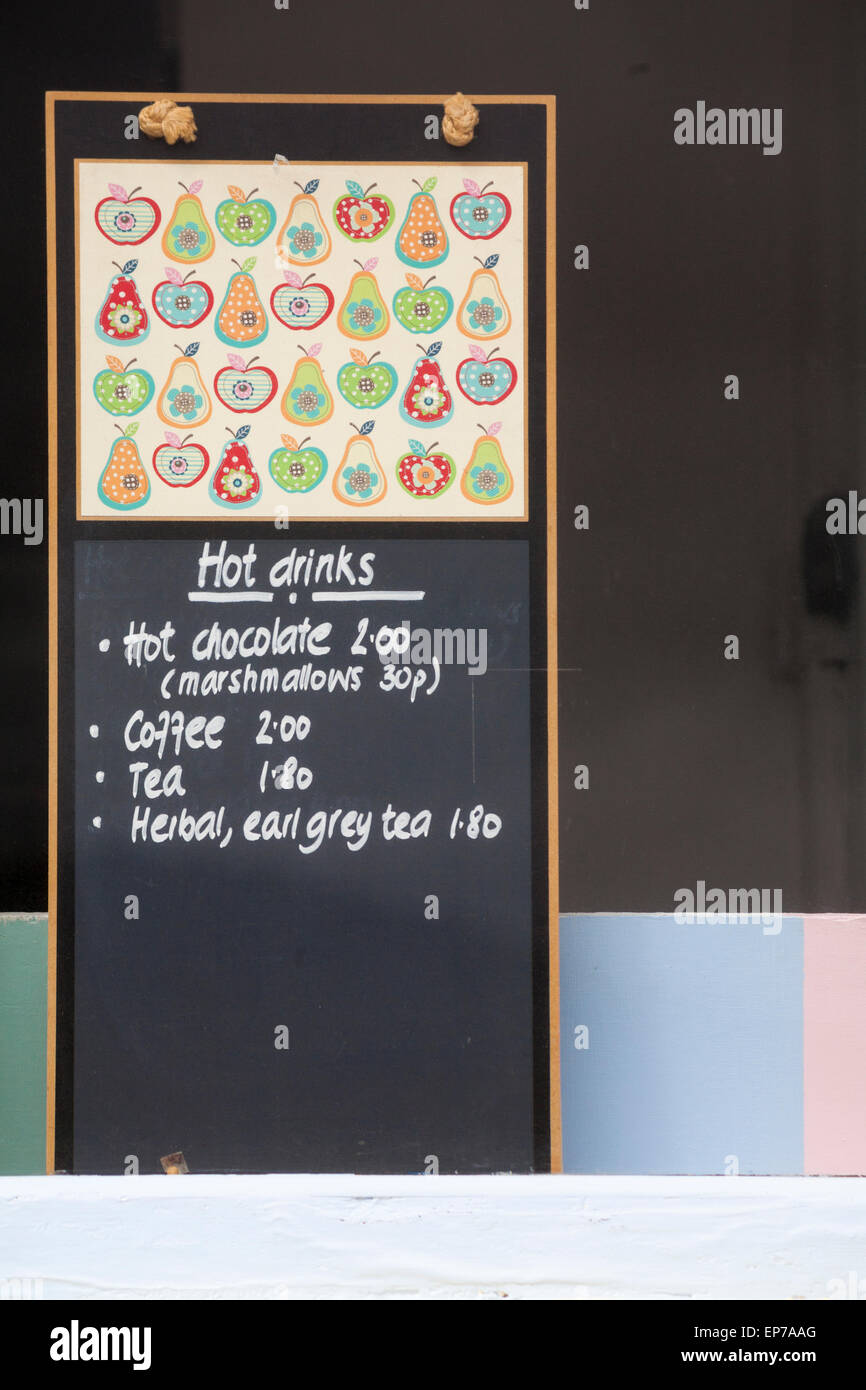 Hot drinks
• Hot chocolate 2.00
(marshmallows 30p)
• Coffee 2.00
• Tea 1.80
• Herbal, earl grey tea 1.80
alamy stock photo
EP7AAG
www.alamy.com